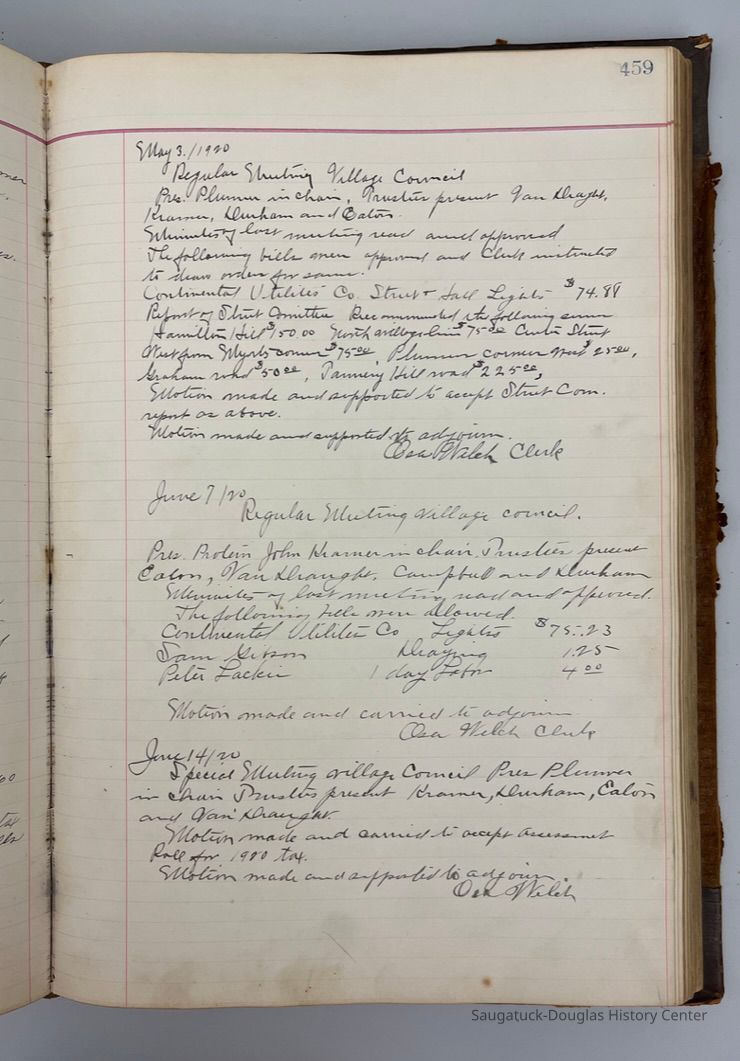 459
May 3./1920
Regular Meeting Village Council
Pres. Plummer in chair, Trustees present Van Draght,
Kramer, Durham and Eaton.
Minutes of last meeting read and approved
The following bills were approved and Clerk instructed
to draw order for same.
Continental Utilities Co. Street & Hall Lights $74.88
Report of Street Committee Recommended the following
Hamilton Hill $150.00 North village line $75.00 Center Street
West from corner $75.00, Plummer corner west $25.00,
Graham road $50.00, Tannery Hill road $225.00,
Motion made and supported to accept Street Com.
report as above.
Motion made and supported to adjourn.
Osa Welch Clerk
June 7/20
Regular Meeting village council.
Pres. Protem John Kramer in chair. Trustees present
Eaton, Van Draught, Campbell and Durham
Minutes of last meeting read and approved.
The following bills were allowed.
Continental Utilities Co Lights $75.23
Sam Draying 1.25
Peter 1 day Labor 4.00
Motion made and carried to adjourn
Osa Welch Clerk
June 14/20
Special Meeting village Council Pres Plummer
in chair Trustees present Kramer, Durham, Eaton
and Van Draught.
Motion made and carried to accept assessmet
Roll for 1920 tax.
Motion made and supported to adjourn.
Osa Welch
Saugatuck-Douglas History Center